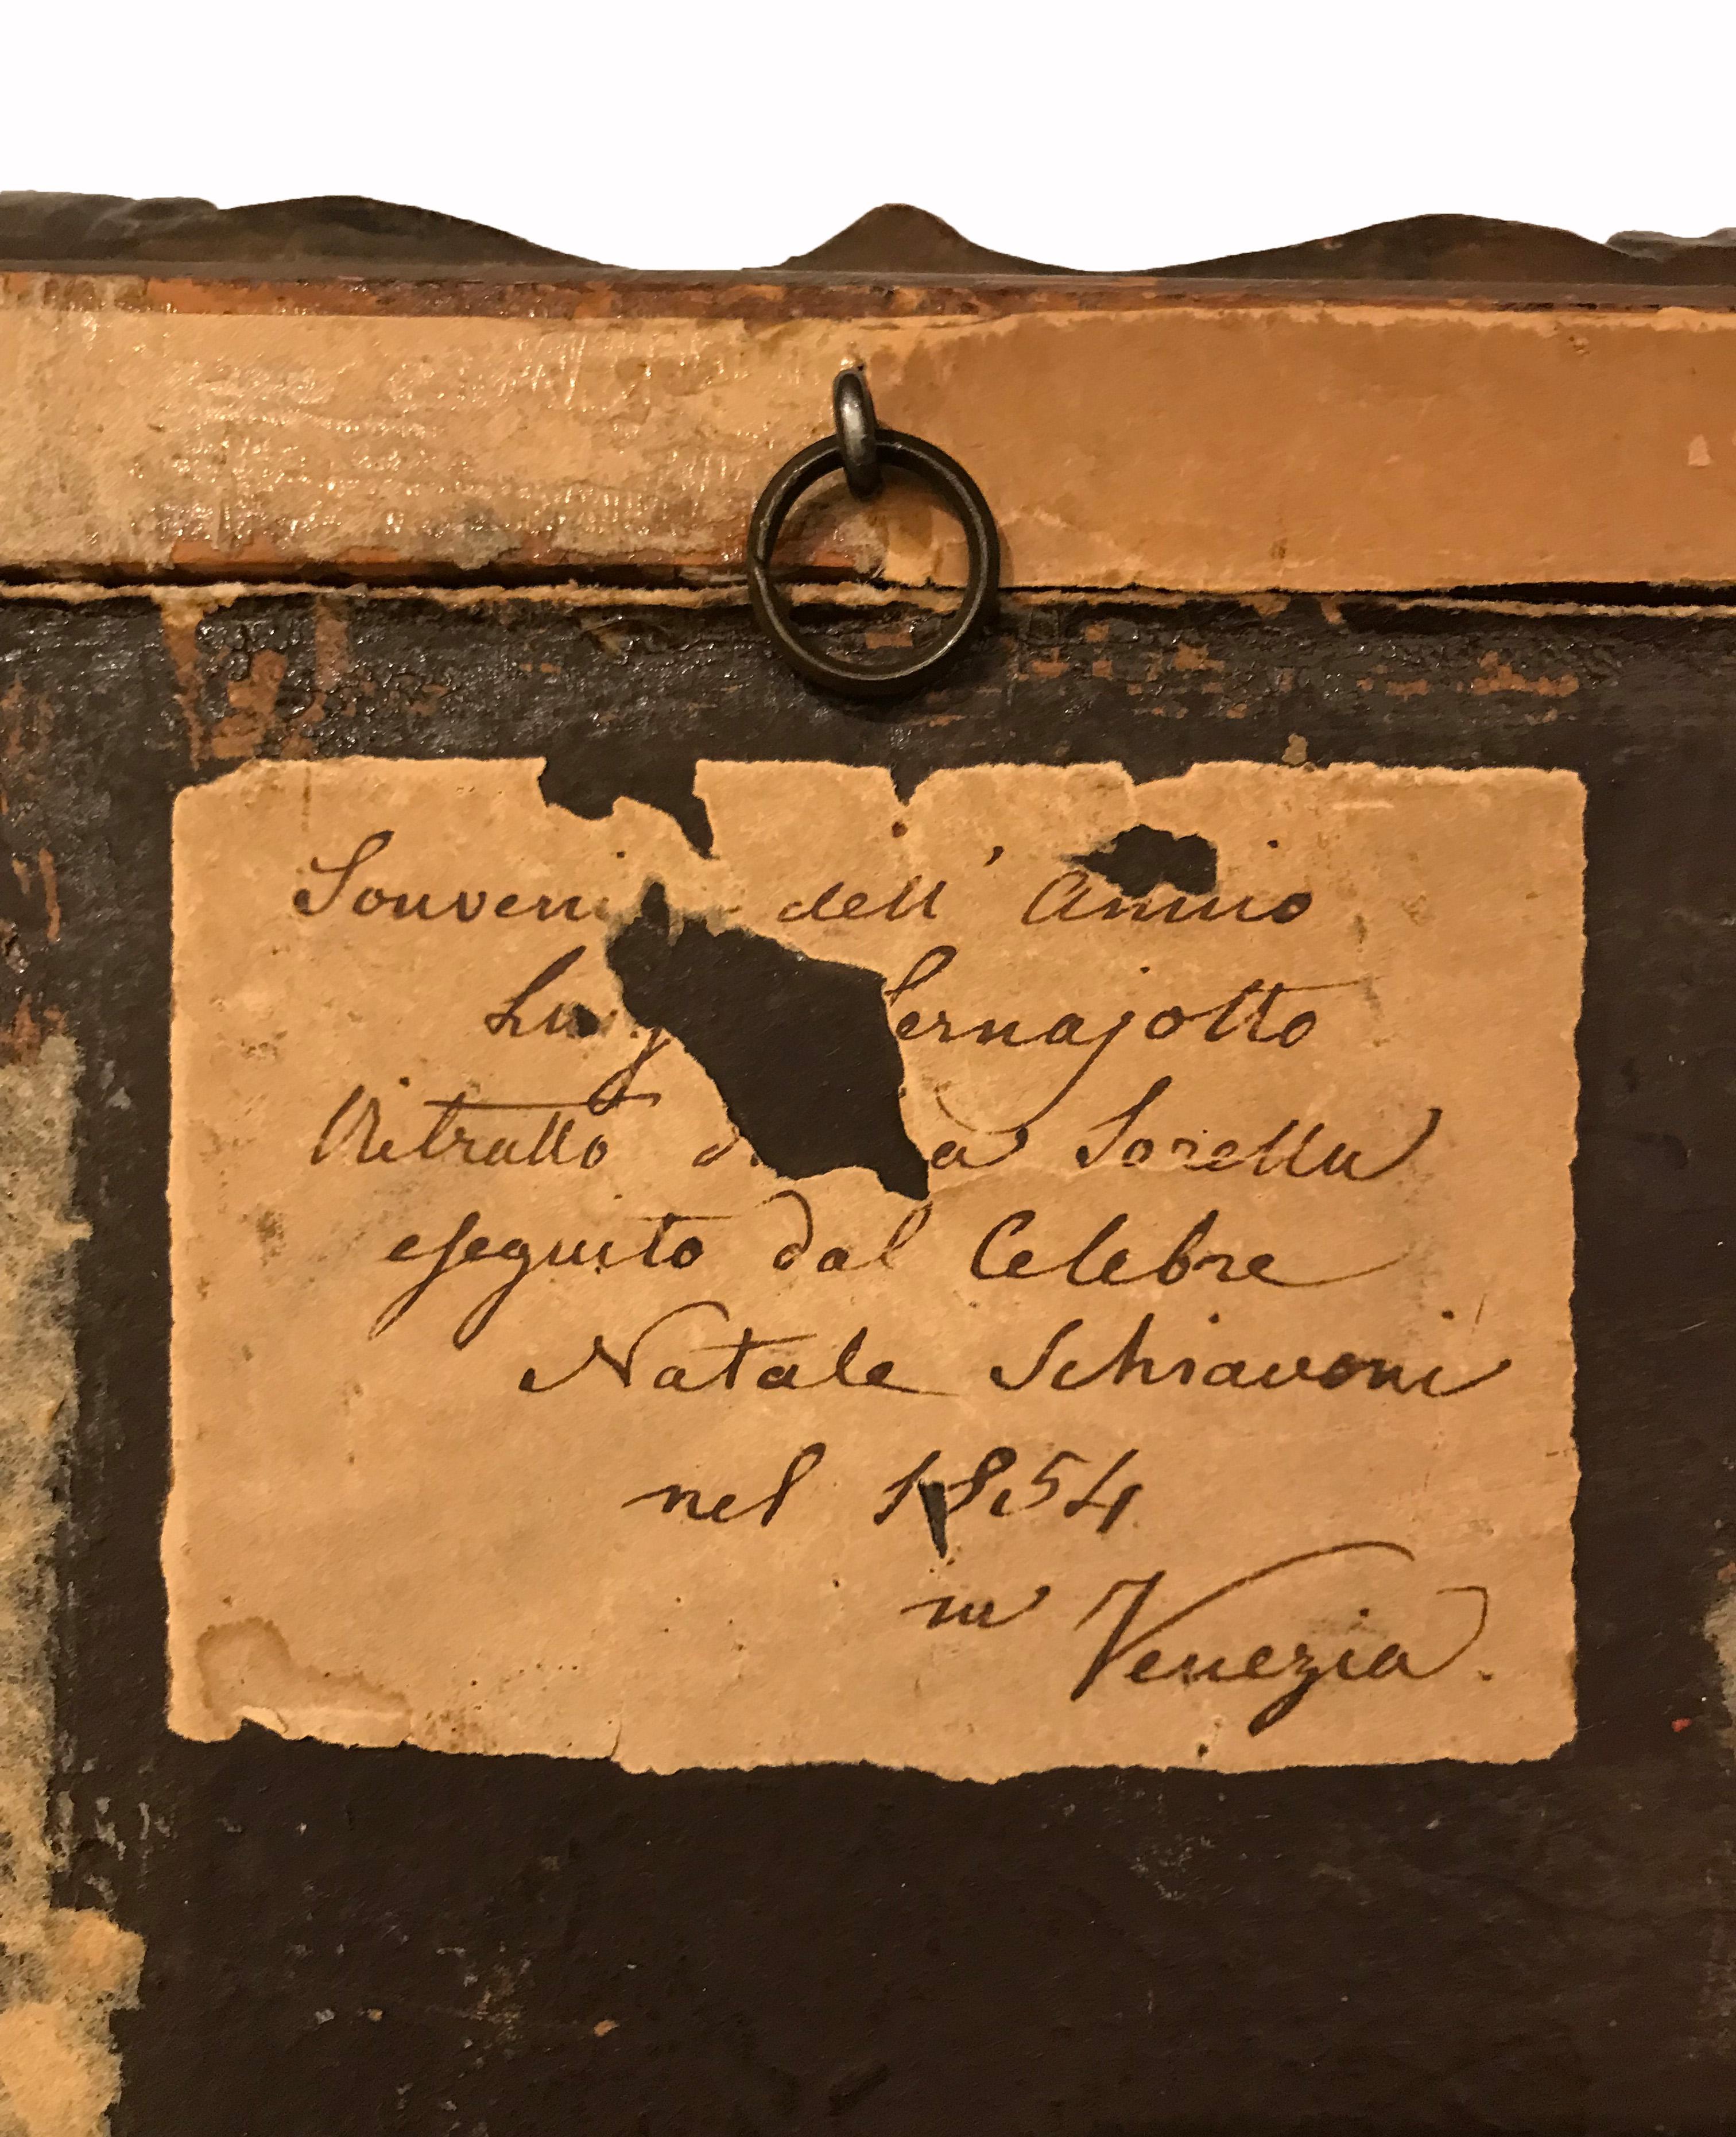 Souveni dell' Amico
Luig ernajotto
Ritratto d a Sorella
eseguito dal Celebre
Natale Schiavoni
nel 1854
in Venezia.